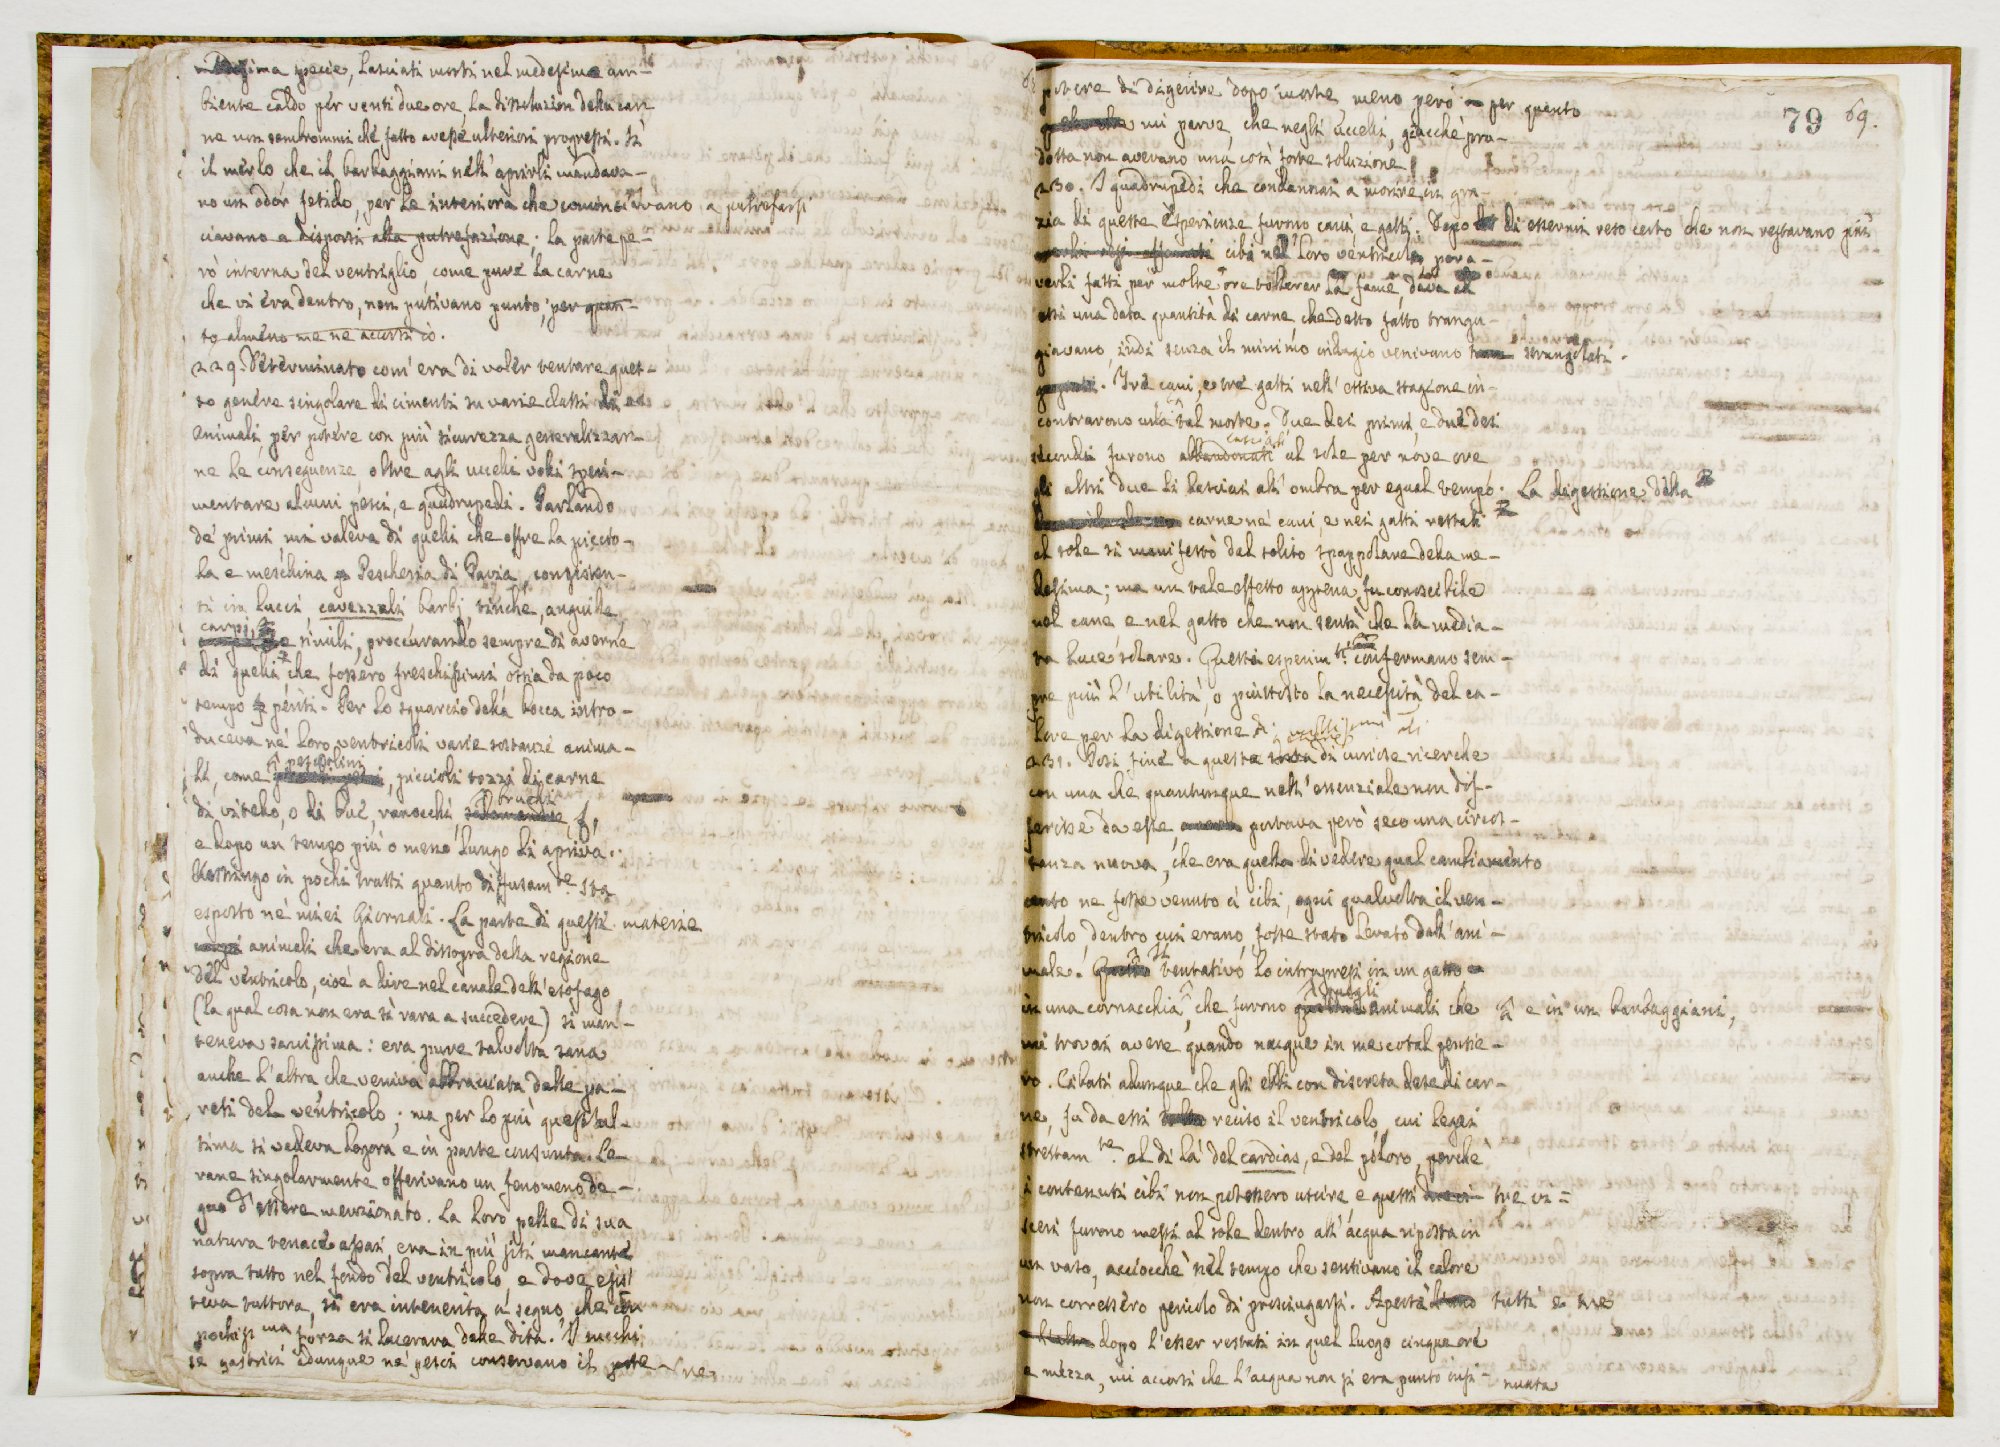 desima specie, lasciati morti nel medesimo am-
biente caldo per venti due ore, la dissoluzion della car-
ne non sembrommi che fatto avesse ulteriori progressi. Sì
il merlo che il barbaggiani nell' aprirli mandava-
no un odor fetido, per le interiora che cominciavano a putrefarsi
ciavano a disporsi alla putrefazione; la parte pe-
rò interna del ventriglio, come pure la carne
che vi era dentro, non putivano punto, per quan-
to almeno me ne accorsi io.
229. Determinato com' era di voler tentare ques-
to genere singolare di cimenti su varie classi di
animali, per potere con più sicurezza generalizzar-
ne le conseguenze, oltre agli uccelli volli speri-
mentare alcuni pesci, e quadrupedi. Parlando
de' primi, mi valeva di quelli che offre la picco-
la e meschina Pescheria di Pavia, consisten-
ti in lucci, cavezzali, barbj, tinche, anguille,
carpi, e simili, proccurando sempre di averne
di quelli, che fossero freschissimi, ossia da poco
tempo periti. Per lo squarcio della bocca intro-
duceva ne' loro ventricoli varie sostanze anima-
li, come pesciolini, piccioli pezzi di carne
di vitello, o di bue, ranocchi, bruchi
e dopo un tempo più o meno lungo li apriva.
Restringo in pochi tratti quanto diffusamte sta
esposto ne' miei Giornali. La parte di queste materie
animali che era al dissopra della regione
del ventricolo, cioè a dire nel canale dell' esofago
(la qual cosa non era sì rara a succedere) si man-
teneva sanissima: era pure talvolta sana
anche l'altra che veniva abbracciata dalle pa-
reti del ventricolo; ma per lo più quest' ul-
tima si vedeva logora e in parte consunta. Le
rane singolarmente offerivano un fenomeno de-
gno d'essere menzionato. La loro pelle di sua
natura tenace assai, era in più siti mancante
sopra tutto nel fondo del ventricolo, e dove esis-
teva tuttora, si era intenerita a segno, che con
pochissma forza si lacerava dalle dita. I succhi
gastrici adunque ne' pesci conservano il pote-re
79 69.
potere di digerire dopo morte, meno però per quanto
mi parve, che negli uccelli, giacchè pro-
dotta non avevano una così forte soluzione.
230. I quadrupedi che condannai a morire in gra-
zia di queste esperienze furono cani, e gatti. Dopo di essermi reso certo che non restavano più
cibi nel loro ventricolo, per a-
verli fatti per molte ore tollerar la fame, dava ad
essi una data quantità di carne, che detto fatto trangu-
giavano indi senza il minimo indugio venivano strangolati.
Tre cani, e tre gatti nell' estiva stagione in-
contrarono una tal morte. Due dei primi, e due dei
secondi furono lasciati al sole per nove ore
gli altri due li lasciai all' ombra per egual tempo. La digestione della
carne ne' cani, e nei gatti restati
al sole si manifestò dal solito spappolare della me-
desima; ma un tale effetto appena fu conoscibile
nel cane, e nel gatto che non sentì che la media-
ta luce solare. Questi esperimti confermano sem-
pre più l'utilità, o piuttosto la necessità del ca-
lore per la digestione di
231. Posi fine a queste di curiose ricerche
con una che quantunque nell' essenziale non dif-
ferisse da esse, portava però seco una circos-
tanza nuova, che era quella di vedere qual cambiamento
ne fosse venuto ai cibi, ogni qualvolta il ven-
tricolo, dentro cui erano, fosse stato levato dall' ani-
male. tentativo lo intrapresi in un gatto
in una cornacchia, che furono quegli animali che e in un barbaggiani,
mi trovai avere, quando nacque in me cotal pensie-
ro. Cibati adunque che gli ebbi con discreta dose di car-
ne, fu da essi reciso il ventricolo, cui legai
strettamte al di là del cardias, e del piloro, perchè
i contenuti cibi non potessero uscire, e questi tre vi-
sceri furono messi al sole dentro all' acqua riposta in
un vaso, acciocchè nel tempo che sentivano il calore
non corressero pericolo di prosciugarsi. Aperti tutti e tre
dopo l'esser restati in quel luogo cinque ore
e mezza, mi accorsi che l'acqua non si era punto insi-nuata